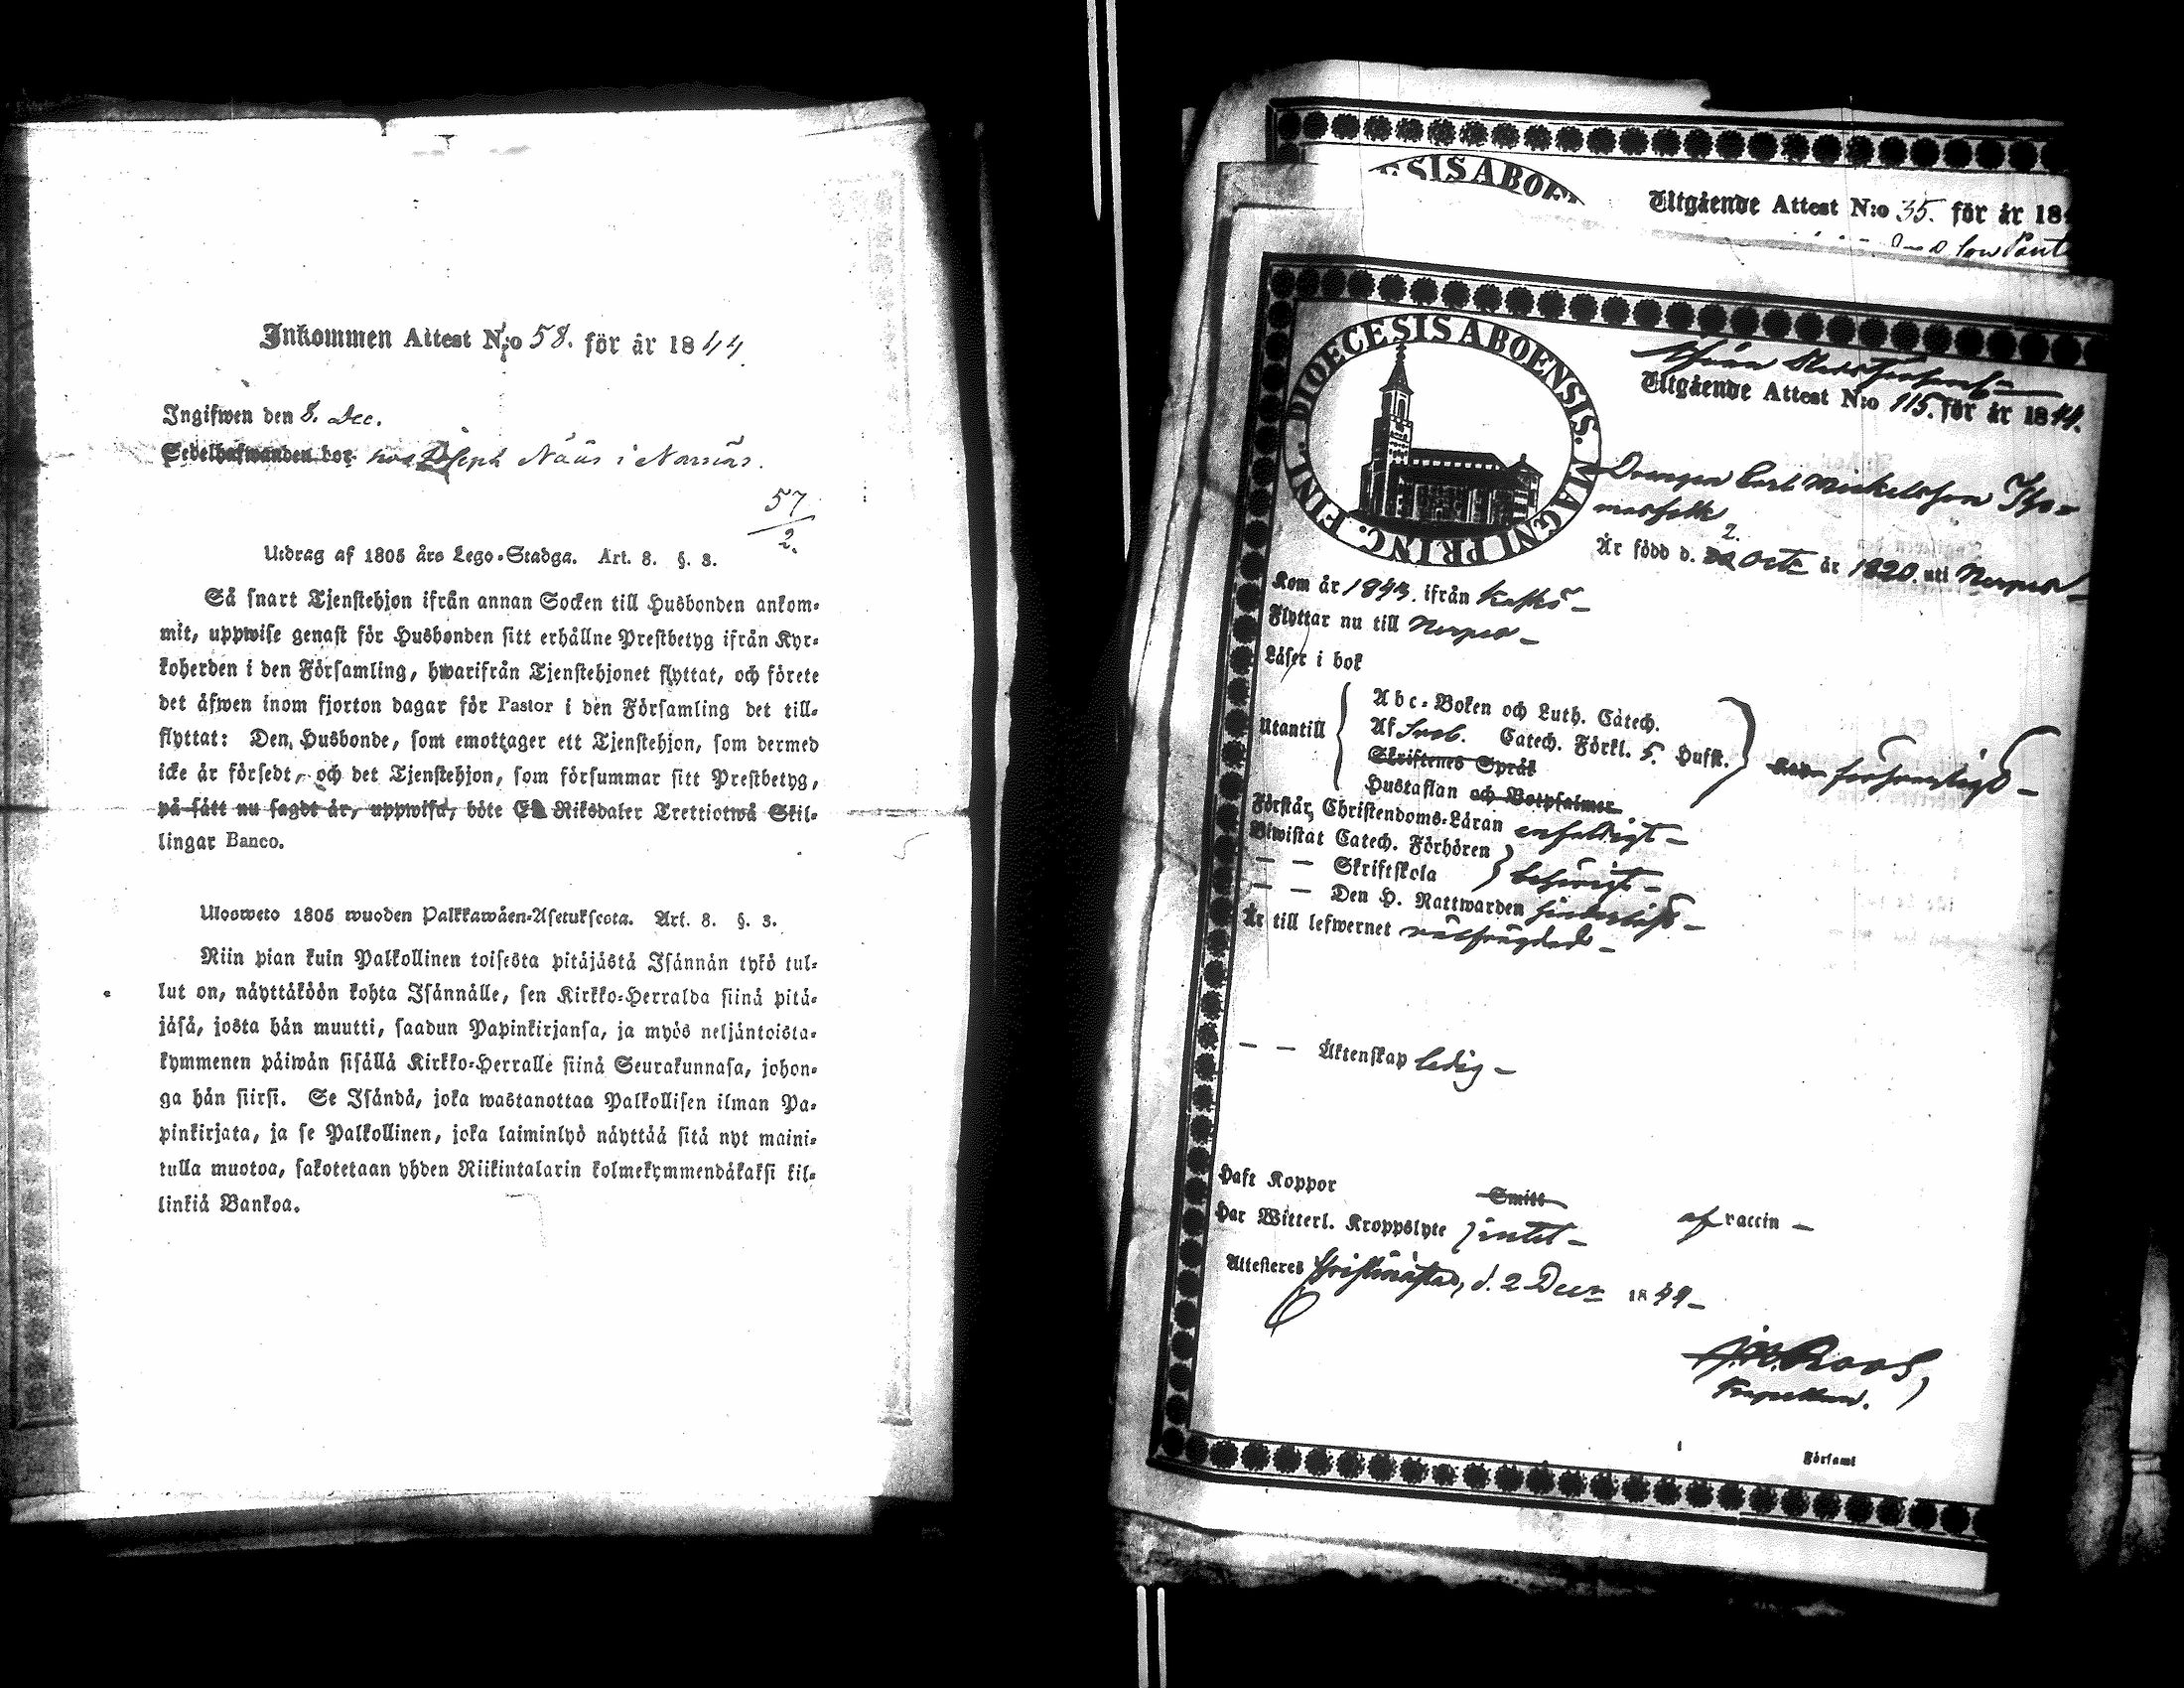 Inkommen Attest N:o 58. för år 1844.
Ingifwen den 8. Dec.
Sedelhafwanden bor hos Joseph Nääs i Namnäs.
57
2.
Utdrag af 1805 års Lego-Stadga. Art. 8. §. 3.
Så snart Tjenstehjon ifrån annan Socken till Husbonden ankom-
mit, uppwise genast för Husbonden sitt erhållne Prestbetyg ifrån Kyr-
koherden i den Församling, hwarifrån Tjenstehjonet flyttat, och förete
det äfwen inom fjorton dagar för Pastor i den Församling det till-
flyttat: Den Husbonde, som emottager ett Tjenstehjon, som dermed
icke är försedt, och det Tjenstehjon, som försummar sitt Prestbetyg,
på sätt nu sagdt är, uppwisa, böte En Riksdaler Trettiotwå Skil-
lingar Banco.
Ulosweto 1805 wuoden Palkkawäen-Asetuksesta. Art. 8. §. 3.
Niin pian kuin Palkollinen toisesta pitäjästä Isännän tykö tul-
lut on, näyttäköön kohta Isännälle, sen Kirkko-Herralda siinä pitä-
jäsä, josta hän muutti, saadun Papinkirjansa, ja myös neljäntoista-
kymmenen päiwän sisällä Kirkko-Herralle siinä Seurakunnasa, johon-
ga hän siirsi. Se Isändä, joka wastanottaa Palkollisen ilman Pa-
pinkirjata, ja se Palkollinen, joka laiminlyö näyttää sitä nyt maini-
tulla muotoa, sakotetaan yhden Riikintalarin kolmekymmendäkaksi kil-
linkiä Bankoa.
Utgående Attest N:o 35. för år 18
DIOECESIS ABOENSIS. MAGNI PRINC. FINL.
Utgående Attest N:o 115. för år 1844.
Drengen Carl Mickelsson Tho-
masfolk
2.
Är född d. Octr år 1820. uti Nerpes
Kom år 1843. ifrån Kaskö
Flyttar nu till Nerpes
Läser i bok
Utantill
Abc-Boken och Luth. Catech.
Af Sveb. Catech. Förkl. 5. Hufst.
Skriftenes Språk
Hustaflan och Botpsalmer
försvarligt
Förstår Christendoms-Läran enfaldigt
Biwistat Catech. Förhören
— — Skriftskola
behörigt
— — Den H. Nattwarden
Är till lefwernet välfrägdad
— — Äktenskap ledig
Haft Koppor
Smitt
af vaccin
Har Witterl. Kroppslyte intet
Attesteres Christinæstad, d. 2 Decr 1844
J. W. Roos,
Församl